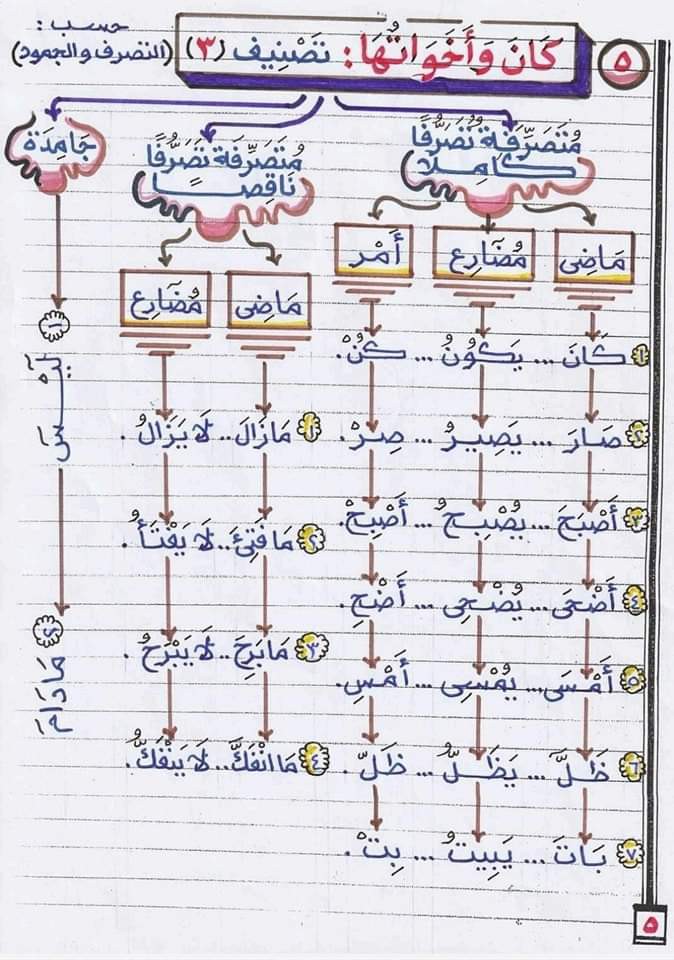 حسب:
٥ كَانَ وَأَخَوَاتُهَا: تَصْنِيف (٣) (التصرف والجمود)
مُتَصَرِّفَة تَصَرُّفًا كَامِلًا
مُتَصَرِّفَة تَصَرُّفًا نَاقِصًا
جَامِدَة
مَاضِى مُضَارِع أَمْر
مَاضِى مُضَارِع
١ كَانَ ... يَكُونُ ... كُنْ.
٢ صَارَ ... يَصِيرُ ... صِرْ.
٣ أَصْبَحَ ... يُصْبِحُ ... أَصْبِحْ.
٤ أَضْحَى ... يُضْحِى ... أَضْحِ.
٥ أَمْسَى ... يُمْسِى ... أَمْسِ.
٦ ظَلَّ ... يَظَلُّ ... ظَلّ.
٧ بَاتَ ... يَبِيتُ ... بِتْ.
١ مَازَالَ.. لَا يَزَالُ.
٢ مَا فَتِئَ.. لَا يَفْتَأُ.
٣ مَا بَرِحَ.. لَا يَبْرَحُ.
٤ مَا انْفَكَّ.. لَا يَنْفَكُّ.
١ لَيْسَ
٢ مَادَامَ
٥